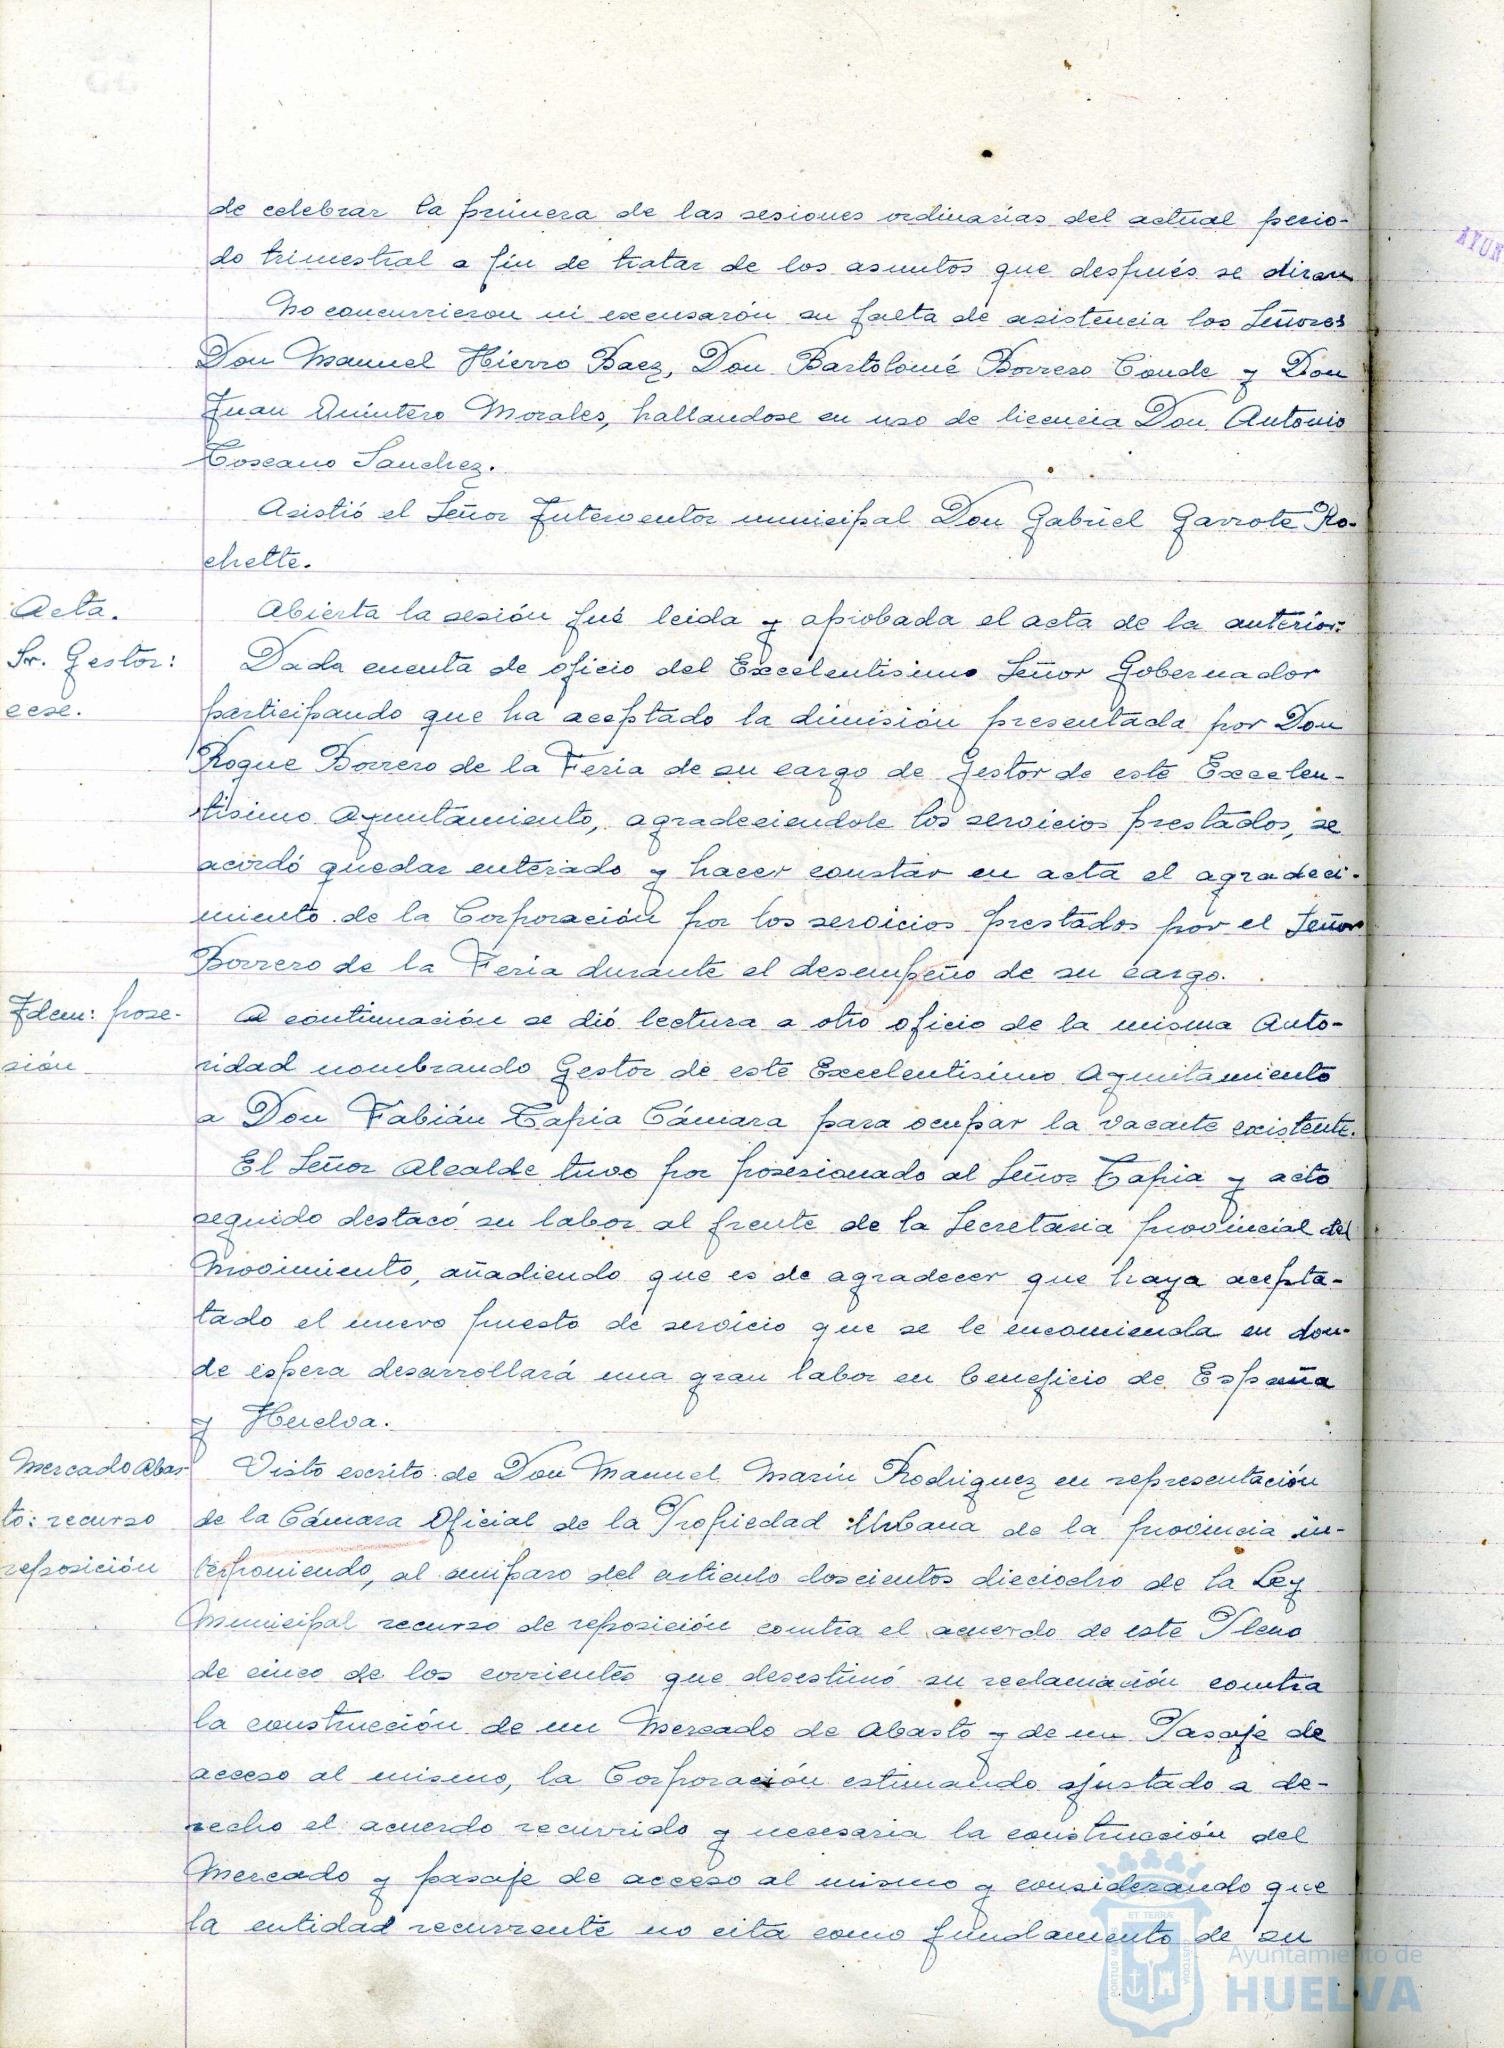 de celebrar la primera de las sesiones ordinarias del actual perio-
do trimestral a fin de tratar de los asuntos que después se diran
No concurrieron ni excusarón su falta de asistencia los Señores
Don Manuel Hierro Baez, Don Bartolomé Borrero Conde y Don
Juan Quintero Morales, hallandose en uso de licencia Don Antonio
Toscano Sanchez.
Asistió el Señor Interventor municipal Don Gabriel Garrote Ro-
chette.
Acta.
Abierta la sesión fué leida y aprobada el acta de la anterior.
Sr. Gestor:
Dada cuenta de oficio del Excelentisimo Señor Gobernador
cese.
participando que ha aceptado la dimisión presentada por Don
Roque Borrero de la Feria de su cargo de Gestor de este Excelen-
tisimo Ayuntamiento, agradeciendole los servicios prestados, se
acordó quedar enterado y hacer constar en acta el agradeci-
miento de la Corporación por los servicios prestados por el Señor
Borrero de la Feria durante el desempeño de su cargo.
Idem: pose-
A continuación se dió lectura a otro oficio de la misma Auto-
sión
ridad nombrando Gestor de este Excelentisimo Ayuntamiento
a Don Fabián Tapia Cámara para ocupar la vacante existente.
El Señor Alcalde tuvo por posesionado al Señor Tapia y acto
seguido destacó su labor al frente de la Secretaria provincial del
Movimiento, añadiendo que es de agradecer que haya acepta-
tado el nuevo puesto de servicio que se le encomienda en don-
de espera desarrollará una gran labor en beneficio de España
y Huelva.
Mercado Abas-
Visto escrito de Don Manuel Marin Rodriguez en representación
to: recurso
de la Cámara Oficial de la Propiedad Urbana de la provincia in-
reposición
terponiendo, al amparo del articulo doscientos dieciocho de la Ley
Municipal recurso de reposición contra el acuerdo de este Pleno
de cinco de los corrientes que desestimó su reclamación contra
la construcción de un Mercado de Abasto y de un Pasaje de
acceso al mismo, la Corporación estimando ajustado a de-
recho el acuerdo recurrido y necesaria la construcción del
Mercado y pasaje de acceso al mismo y considerando que
la entidad recurrente no cita como fundamento de su
AYUN
PORTUS MARIS
ET TERRÆ
CUSTODIA
Ayuntamiento de
HUELVA